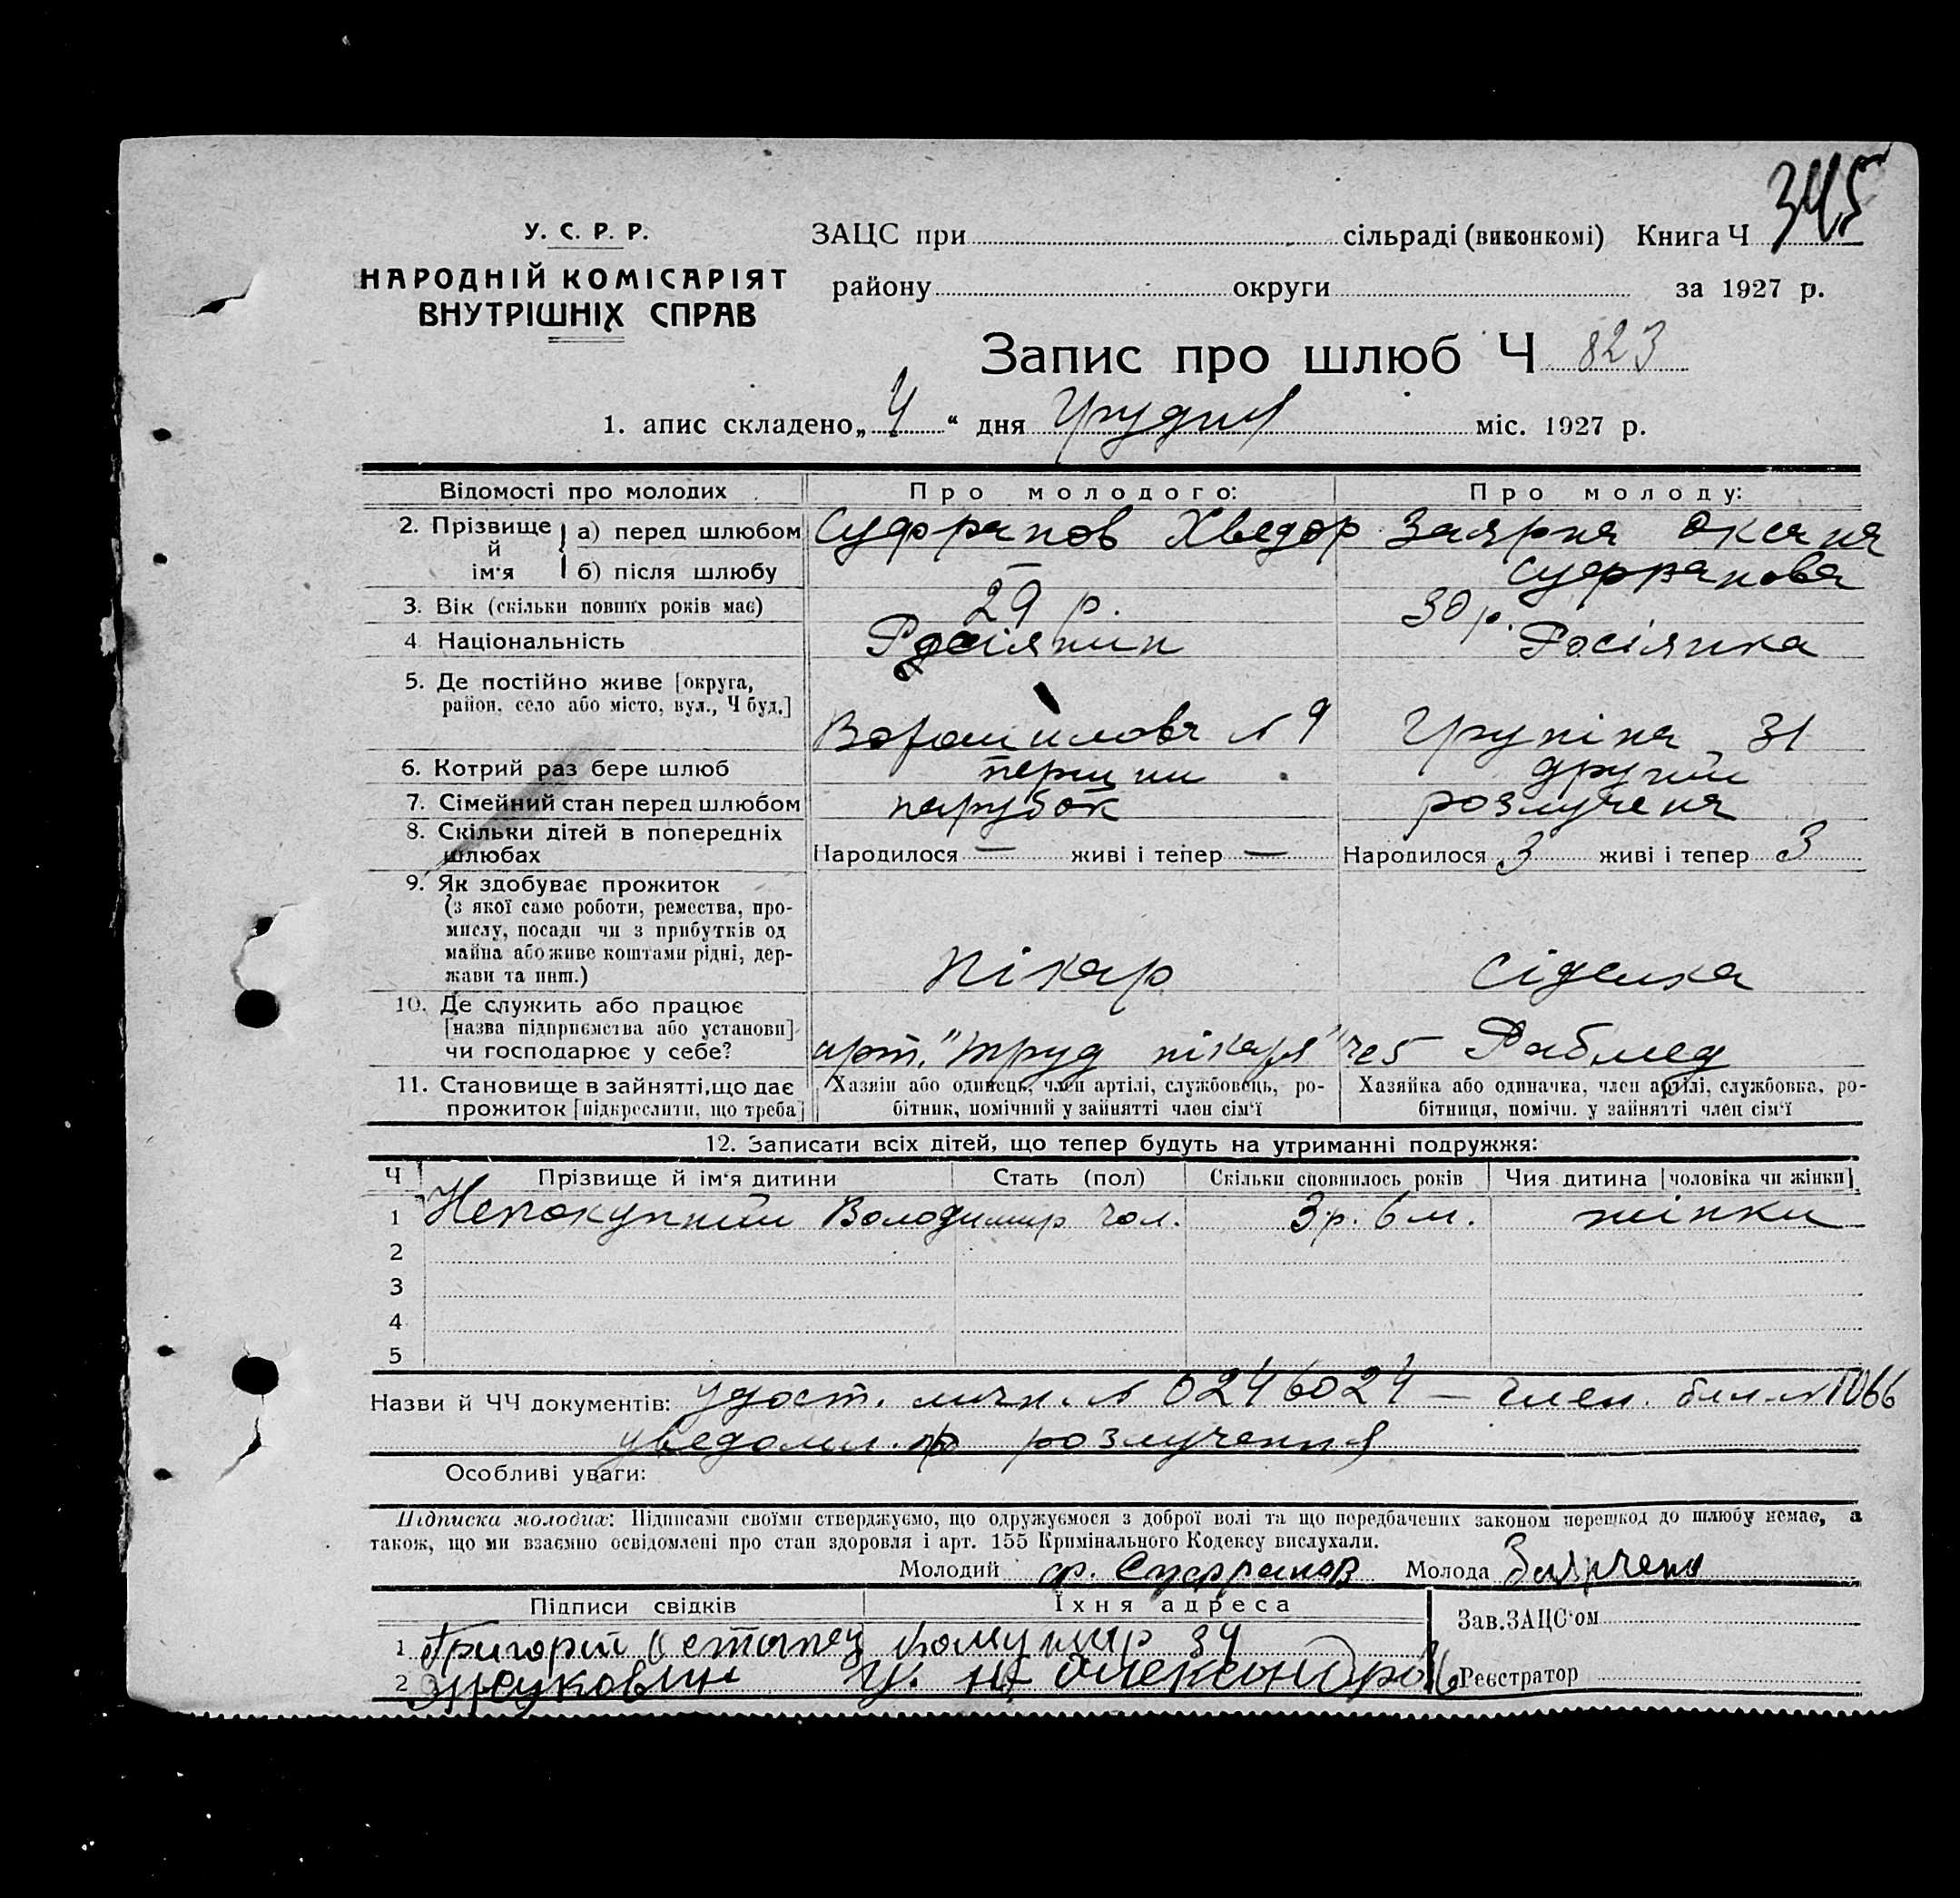 345
У. С. Р. Р.
НАРОДНІЙ КОМІСАРІЯТ
ВНУТРІШНІХ СПРАВ
ЗАЦС при сільраді (виконкомі) Книга Ч
району округи за 1927 р.
Запис про шлюб Ч 823
1. апис складено „4“ дня Грудня міс. 1927 р.
Відомості про молодих Про молодого: Про молоду:
2. Прізвище й ім‘я а) перед шлюбом Суфранов Хведор Заярна Оксана
б) після шлюбу — Суфранова
3. Вік (скільки повних років має) 29 р. 30 р.
4 Національність Росіянин Росіянка
5. Де постійно живе [округа,
район, село або місто, вул., Ч буд.] Ворошилова № 9 31
6. Котрий раз бере шлюб перший другий
7. Сімейний стан перед шлюбом парубок розлучена
8. Скільки дітей в попередніх
шлюбах Народилося — живі і тепер — Народилося 3 живі і тепер 3
9. Як здобуває прожиток
(з якої само роботи, ремества, про-
мислу, посади чи з прибутків од
майна або живе коштами рідні, дер-
жави та инш.) пікар сіделка
10. Де служить або працює
[назва підприємства або установи]
чи господарює у себе? арт. "труд пікаря" Рабмед
11. Становище в зайнятті, що дає Хазяїн або одинець, член артілі, службовець, ро- Хазяйка або одиначка, член артілі, службовка, ро-
прожиток [підкреслити, що треба] бітник, помічний у зайнятті член сім‘ї бітниця, помічн. у зайнятті член сім‘ї
12. Записати всіх дітей, що тепер будуть на утриманні подружжя:
Ч Прізвище й ім‘я дитини Стать (пол) Скільки сповнилось років Чия дитина [чоловіка чи жінки]
1 Непокупний Володимир чол. 3 р. 6 м. жінки
2
3
4
5
Назви й ЧЧ документів: удост. личн. № 0246024 — член. бил. № 1066
уведомл. пр розлучення
Особливі уваги:
Підписки молодих: Підписами своїми стверджуємо, що одружуємося з доброї волі та що передбачених законом перешкод до шлюбу немає, а
також, що ми взаємно освідомлені про стан здоровля і арт. 155 Кримінального Кодексу вислухали.
Молодий Ф. Суфранов Молода
Підписи свідків Їхня адреса Зав. ЗАЦС‘ом
1 Григорий 34
2 Реєстратор